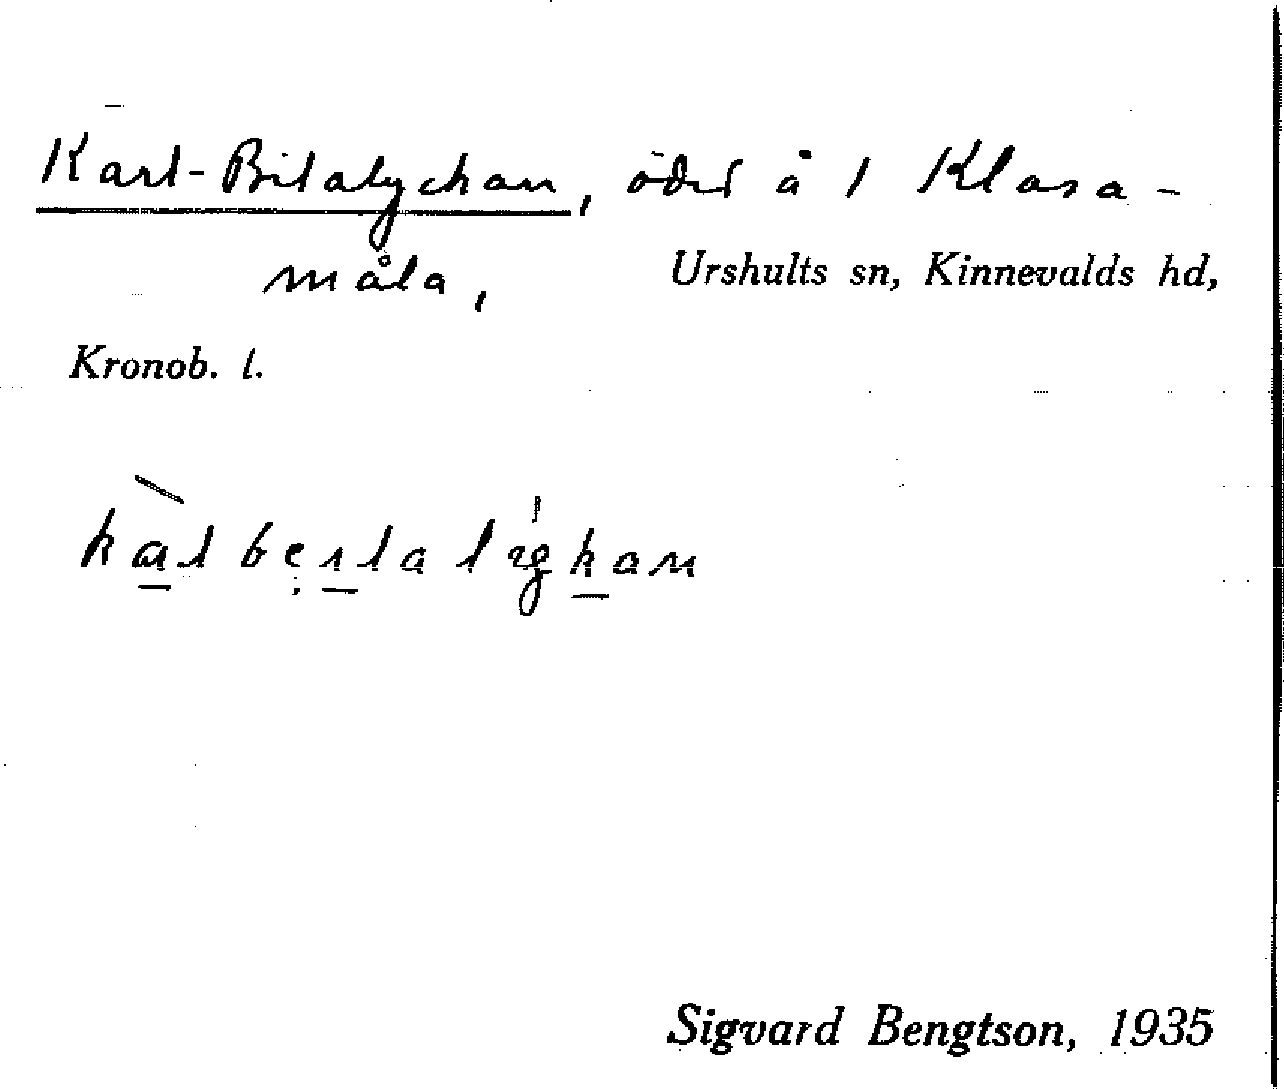 Karl-Bitalyckan, öde å 1 Klasa-
måla, Urshults sn, Kinnevalds hd,
Kronob. l.
Sigvard Bengtson, 1935